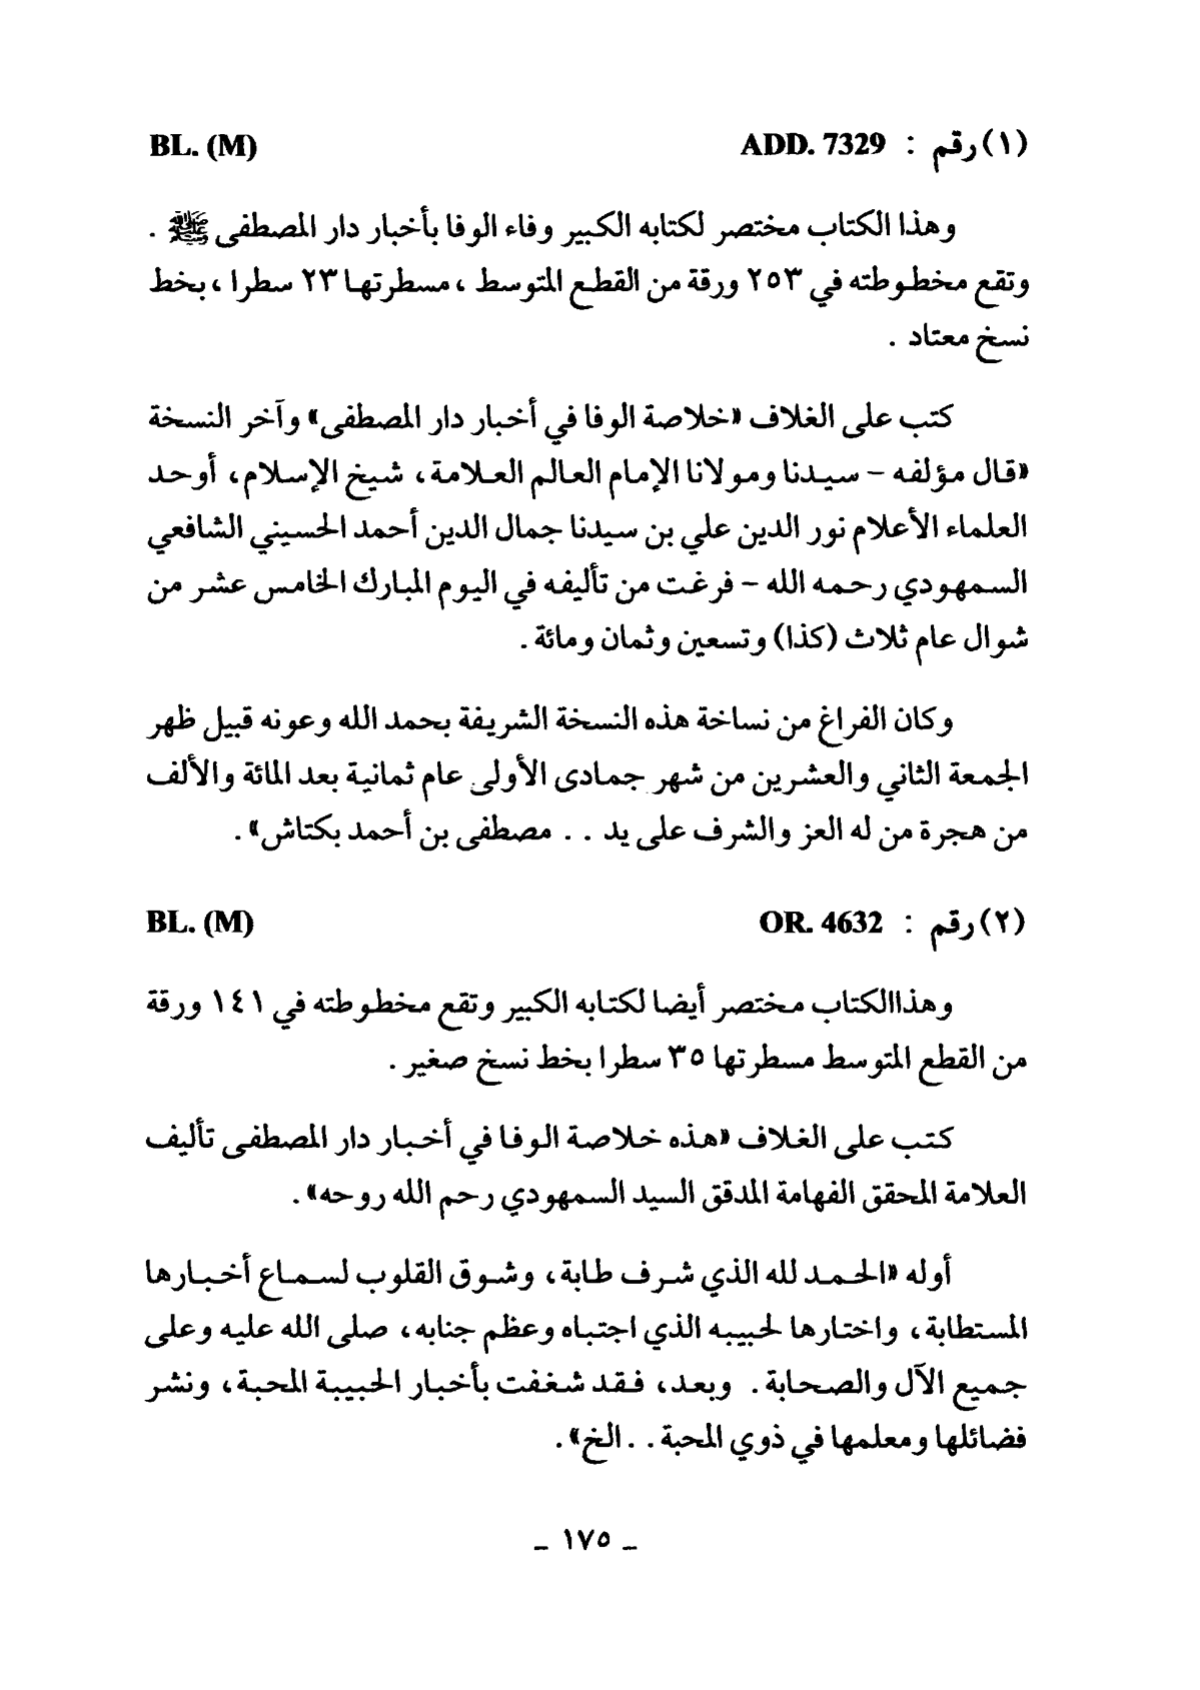 (١) رقم : ADD. 7329 BL. (M)
وهذا الكتاب مختصر لكتابه الكبير وفاء الوفا بأخبار دار المصطفى ﷺ .
وتقع مخطوطته في ٢٥٣ ورقة من القطع المتوسط ، مسطرتها ٢٣ سطرا ، بخط
نسخ معتاد .
كتب على الغلاف «خلاصة الوفا في أخبار دار المصطفى» وآخر النسخة
«قال مؤلفه - سيدنا ومولانا الإمام العالم العلامة، شيخ الإسلام، أوحد
العلماء الأعلام نور الدين علي بن سيدنا جمال الدين أحمد الحسيني الشافعي
السمهودي رحمه الله - فرغت من تأليفه في اليوم المبارك الخامس عشر من
شوال عام ثلاث (كذا) وتسعين وثمان ومائة .
وكان الفراغ من نساخة هذه النسخة الشريفة بحمد الله وعونه قبيل ظهر
الجمعة الثاني والعشرين من شهر جمادى الأولى عام ثمانية بعد المائة والألف
من هجرة من له العز والشرف على يد . . مصطفى بن أحمد بكتاش» .
(٢) رقم : OR. 4632 BL. (M)
وهذاالكتاب مختصر أيضا لكتابه الكبير وتقع مخطوطته في ١٤١ ورقة
من القطع المتوسط مسطرتها ٣٥ سطرا بخط نسخ صغير .
كتب على الغلاف «هذه خلاصة الوفا في أخبار دار المصطفى تأليف
العلامة المحقق الفهامة المدقق السيد السمهودي رحم الله روحه» .
أوله «الحمد لله الذي شرف طابة، وشوق القلوب لسماع أخبارها
المستطابة، واختارها لحبيبه الذي اجتباه وعظم جنابه، صلى الله عليه وعلى
جميع الآل والصحابة . وبعد، فقد شغفت بأخبار الحبيبة المحبة، ونشر
فضائلها ومعلمها في ذوي المحبة . . الخ» .
ـ ١٧٥ ـ